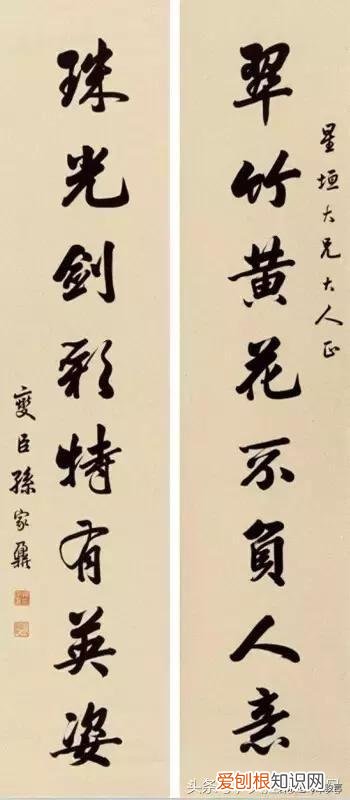 星垣大兄大人正
翠竹黄花不負人意
珠光劍彩特有英姿
燮臣孫家鼐
头条
爱刨根知识网